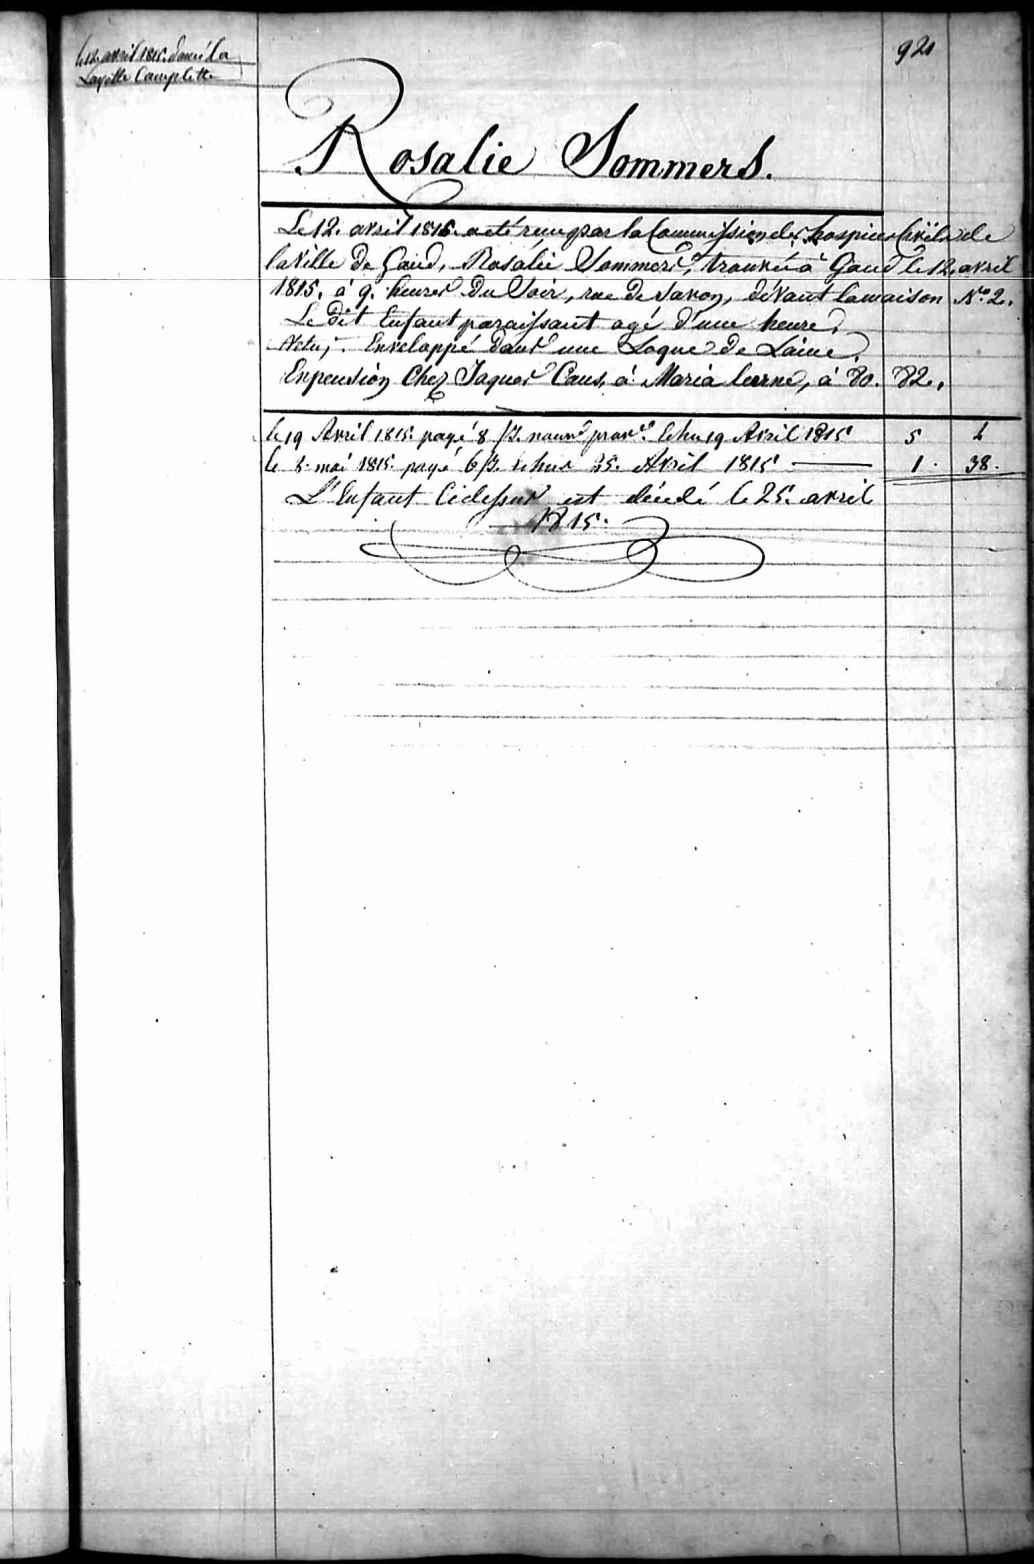 le 12 avril 1815. donné la
Layette Complette
921
Rosalie Sommers.
Le 12. avril 1815. a eté reçu par la Commission des hospices Civils de
la Ville de Gand, Rosalie Sommers, trouvée à Gand le 12. avril
1815, à 9. heures Du Soir, rue de Savon, dévant la maison No 2.
Le dit Enfant paraissant agé d'une heure,
Vetu, Enveloppé dans une Loque de Laine.
Enpension Chez Jaques Caus, à Maria, à 80. 82.
le 19 Avril 1815. payé 8 le 19 Avril 1815 5
le mai 1815. payé 6 25. Avril 1815 1. 38.
L'Enfant Cidessus est décédé le 25. avril
1815.